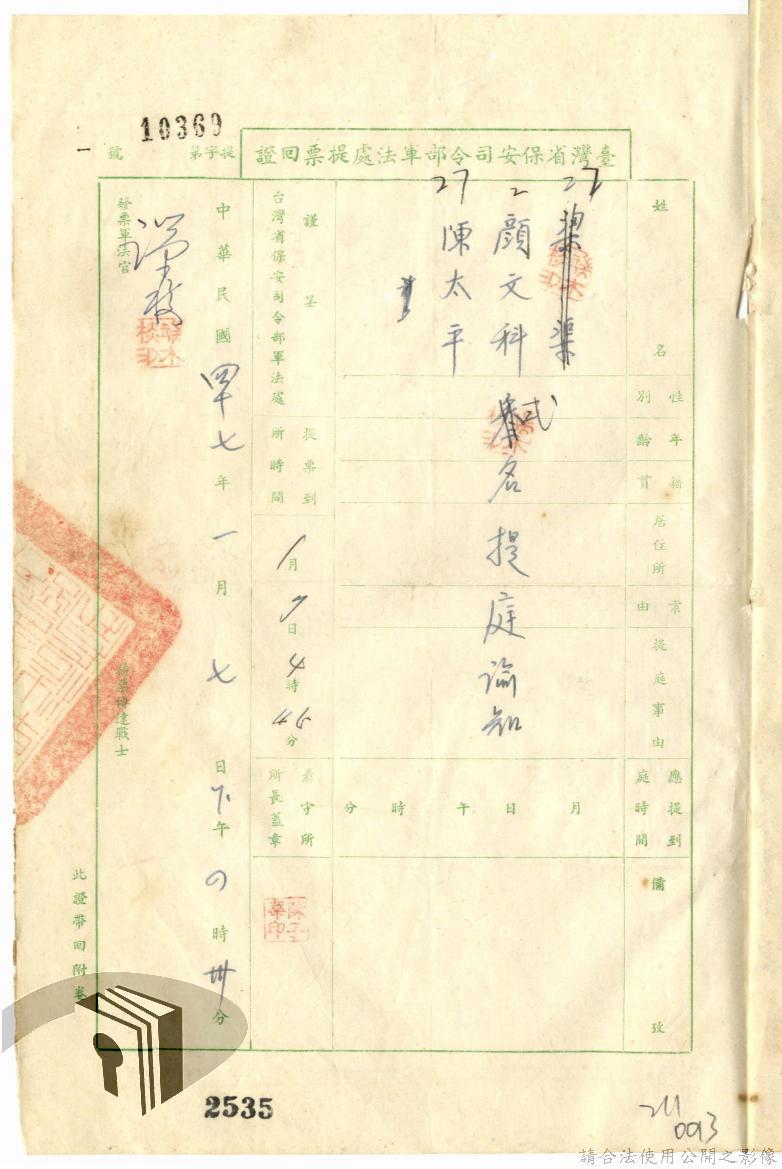 10369
臺灣省保安司令部軍法處提票回證
提字第
號
姓名
性別
年齡
籍貫
居住所
業由
提庭事由
應提到庭時間
備攷
27
2
顏文科
27
陳太平
弍名提庭諭知
月日午時分
謹呈
台灣省保安司令部軍法處
提票到所時間
1月7日4時45分
看守所所長蓋章
中華民國四十七年一月七日下午四時卅分
發票軍法官
此證帶回附卷
2535
211
0093
請合法使用公開之影像